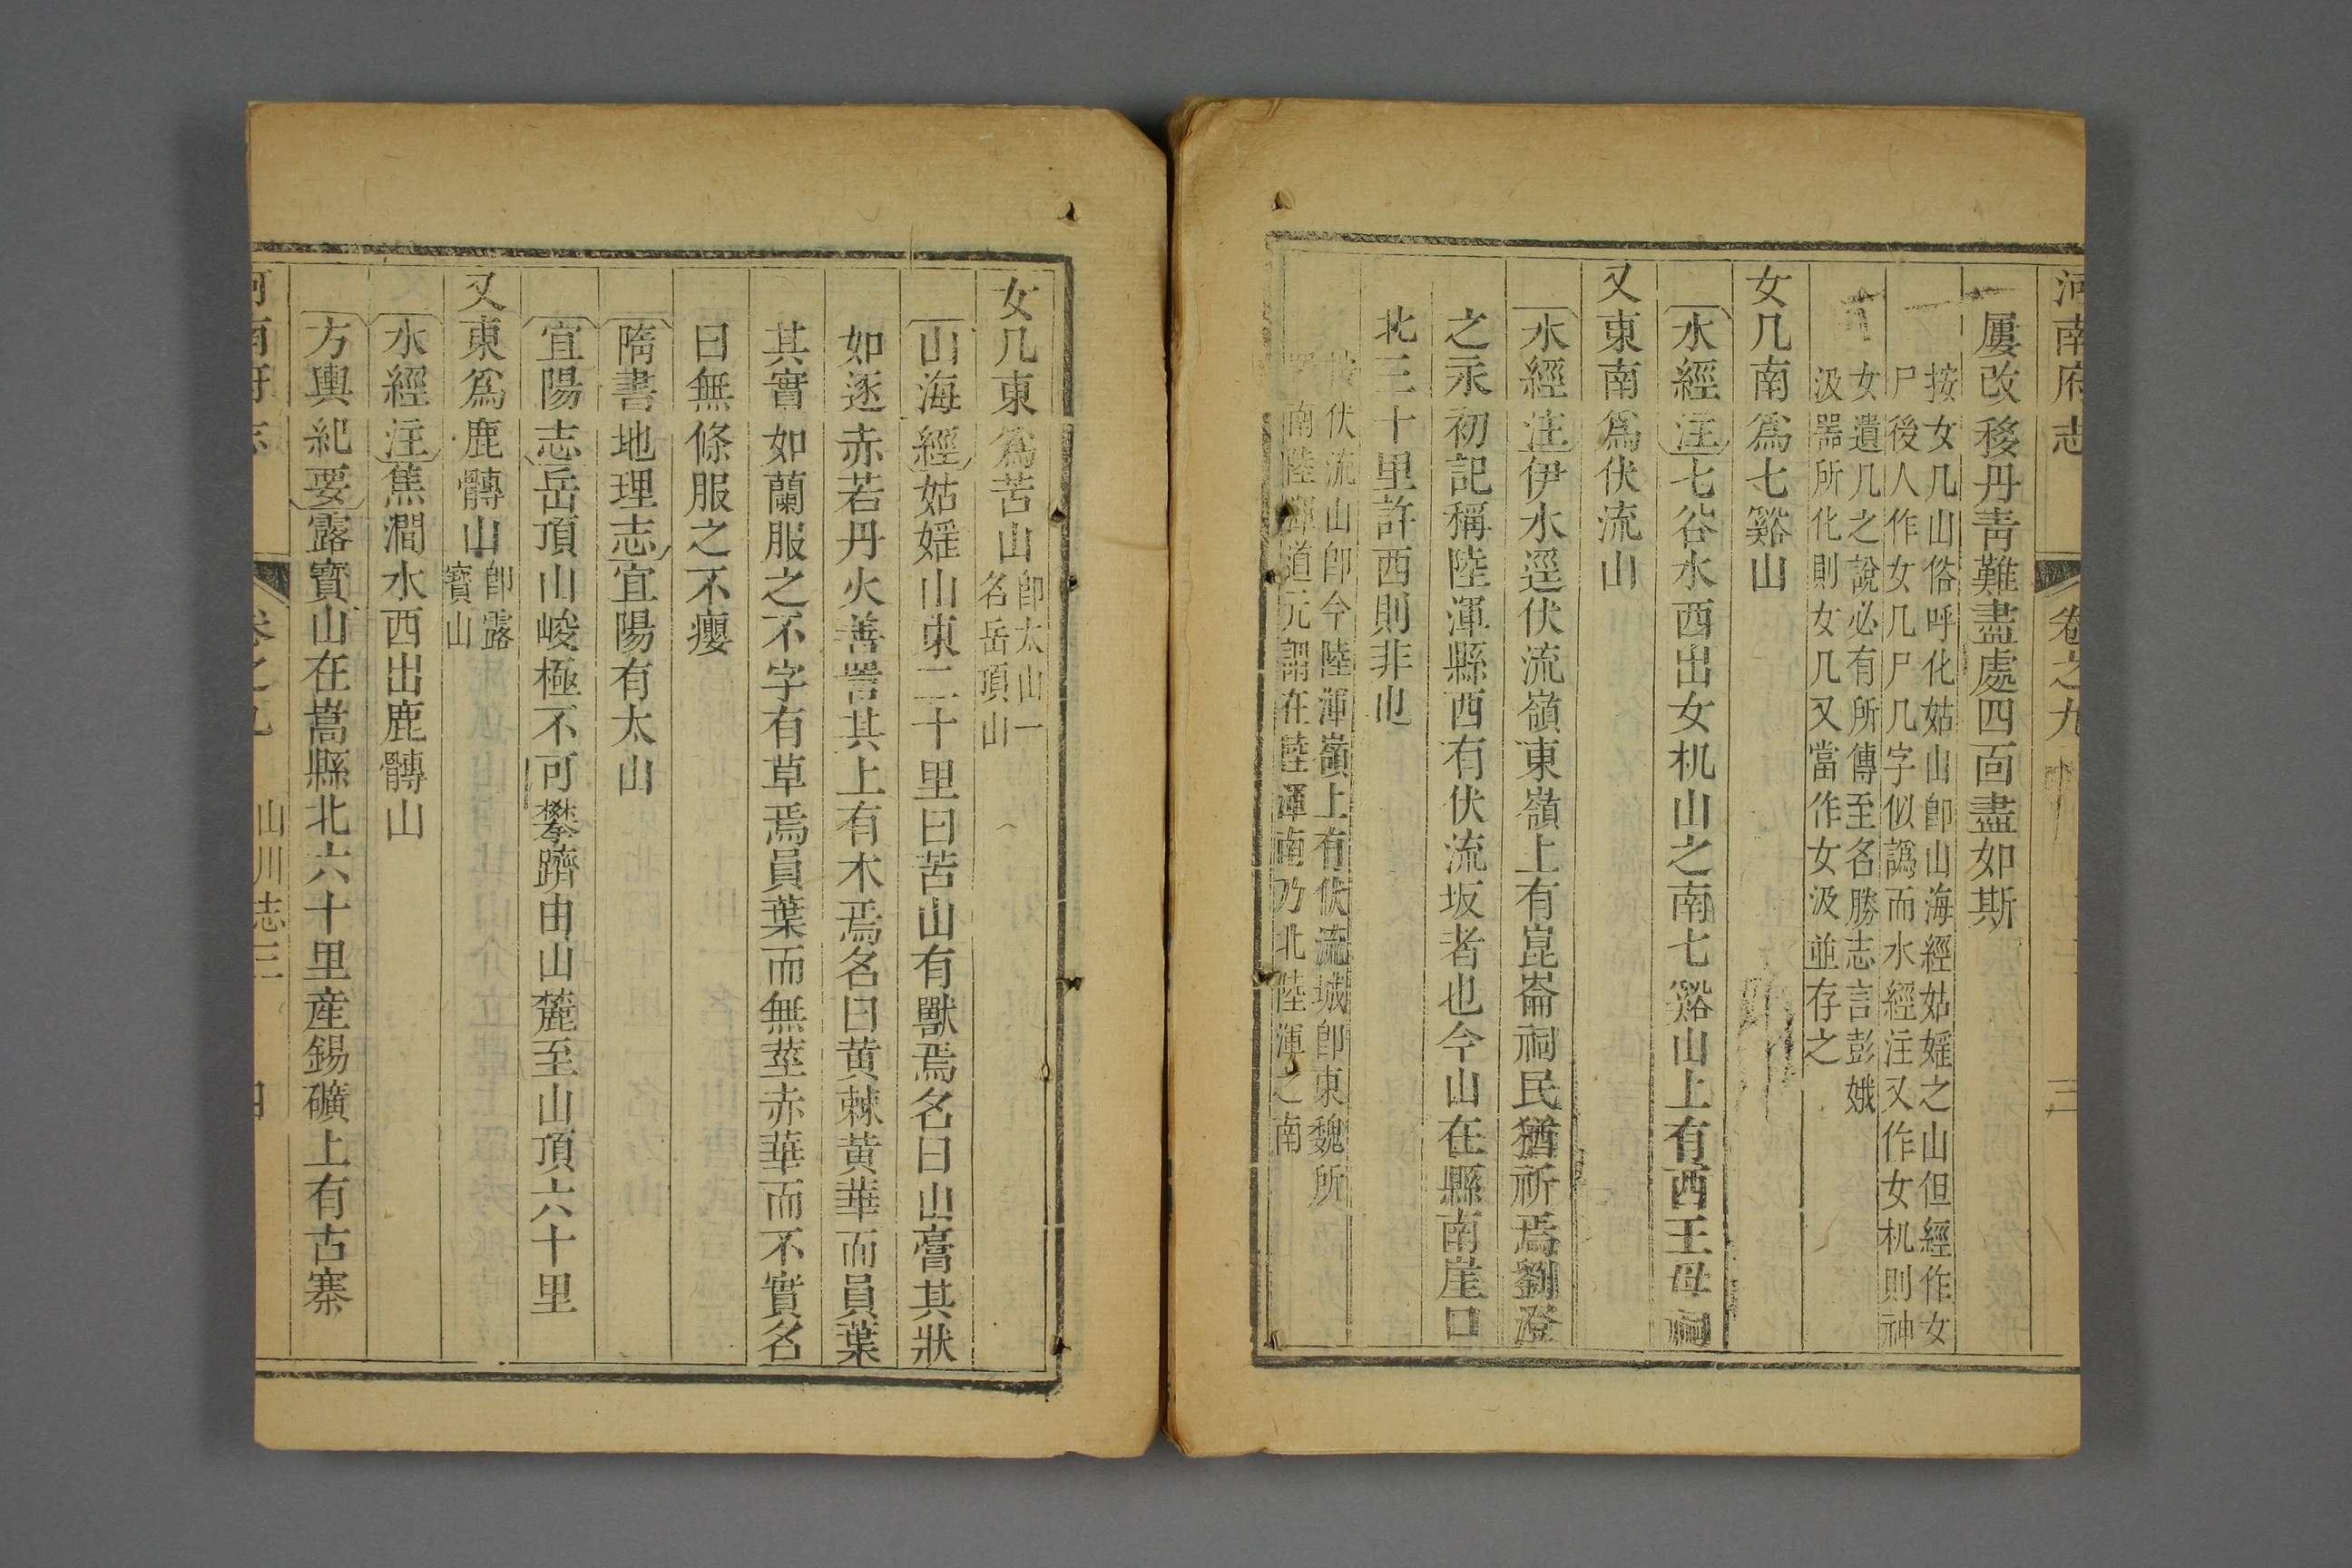 河南府志 卷之九 三
屢改移丹靑難盡處四面盡如斯
按女几山俗呼化姑山卽山海經姑媱之山但經作女
尸後人作女几尸几字似譌而水經注又作女机則神
女遺几之說必有所傳至名勝志言彭娥
汲器所化則女几又當作女汲並存之
女几南爲七谿山
水經注七谷水西出女机山之南七谿山上有西王母祠
又東南爲伏流山
水經注伊水逕伏流嶺東嶺上有崑崙祠民猶祈焉劉澄
之永初記稱陸渾縣西有伏流坂者也今山在縣南崖口
北三十里許西則非也
按伏流山卽今陸渾嶺上有伏流城卽東魏所
南陸渾道元謂在陸渾南乃北陸渾之南
女几東爲苦山
卽太山一
名岳頂山
山海經姑媱山東二十里曰苦山有獸焉名曰山膏其狀
如逐赤若丹火善詈其上有木焉名曰黄棘黄華而員葉
其實如蘭服之不字有草焉員葉而無莖赤華而不實名
曰無條服之不癭
隋書地理志宜陽有太山
宜陽志岳頂山峻極不可攀躋由山麓至山頂六十里
又東爲鹿䯤山
卽露
寶山
水經注蕉澗水西出鹿䯤山
方輿紀要露寶山在嵩縣北六十里産錫礦上有古寨
河南府志 卷之九 山川志三 四